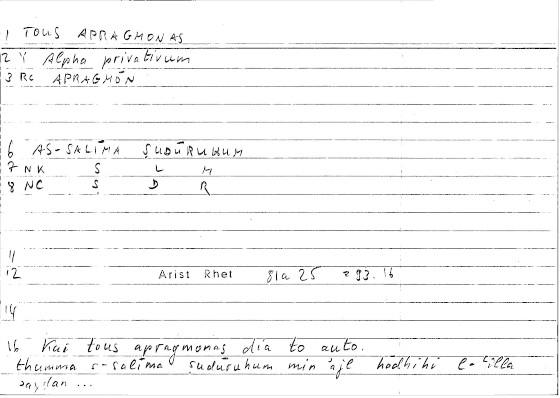 1 TOUS APRAGMONAS
2 Y Alpha privativum
3 Rc APRAGMŌN
6 AS-SALĪMA ṢUDŪRUHUM
7 NK S L M
8 NC Ṣ D R
11
12 Arist Rhet 81a 25 = 93.16
14
16 Kai tous apragmonas dia to auto.
thumma s-salīma ṣudūruhum min ajl hādhihi l-ʿilla